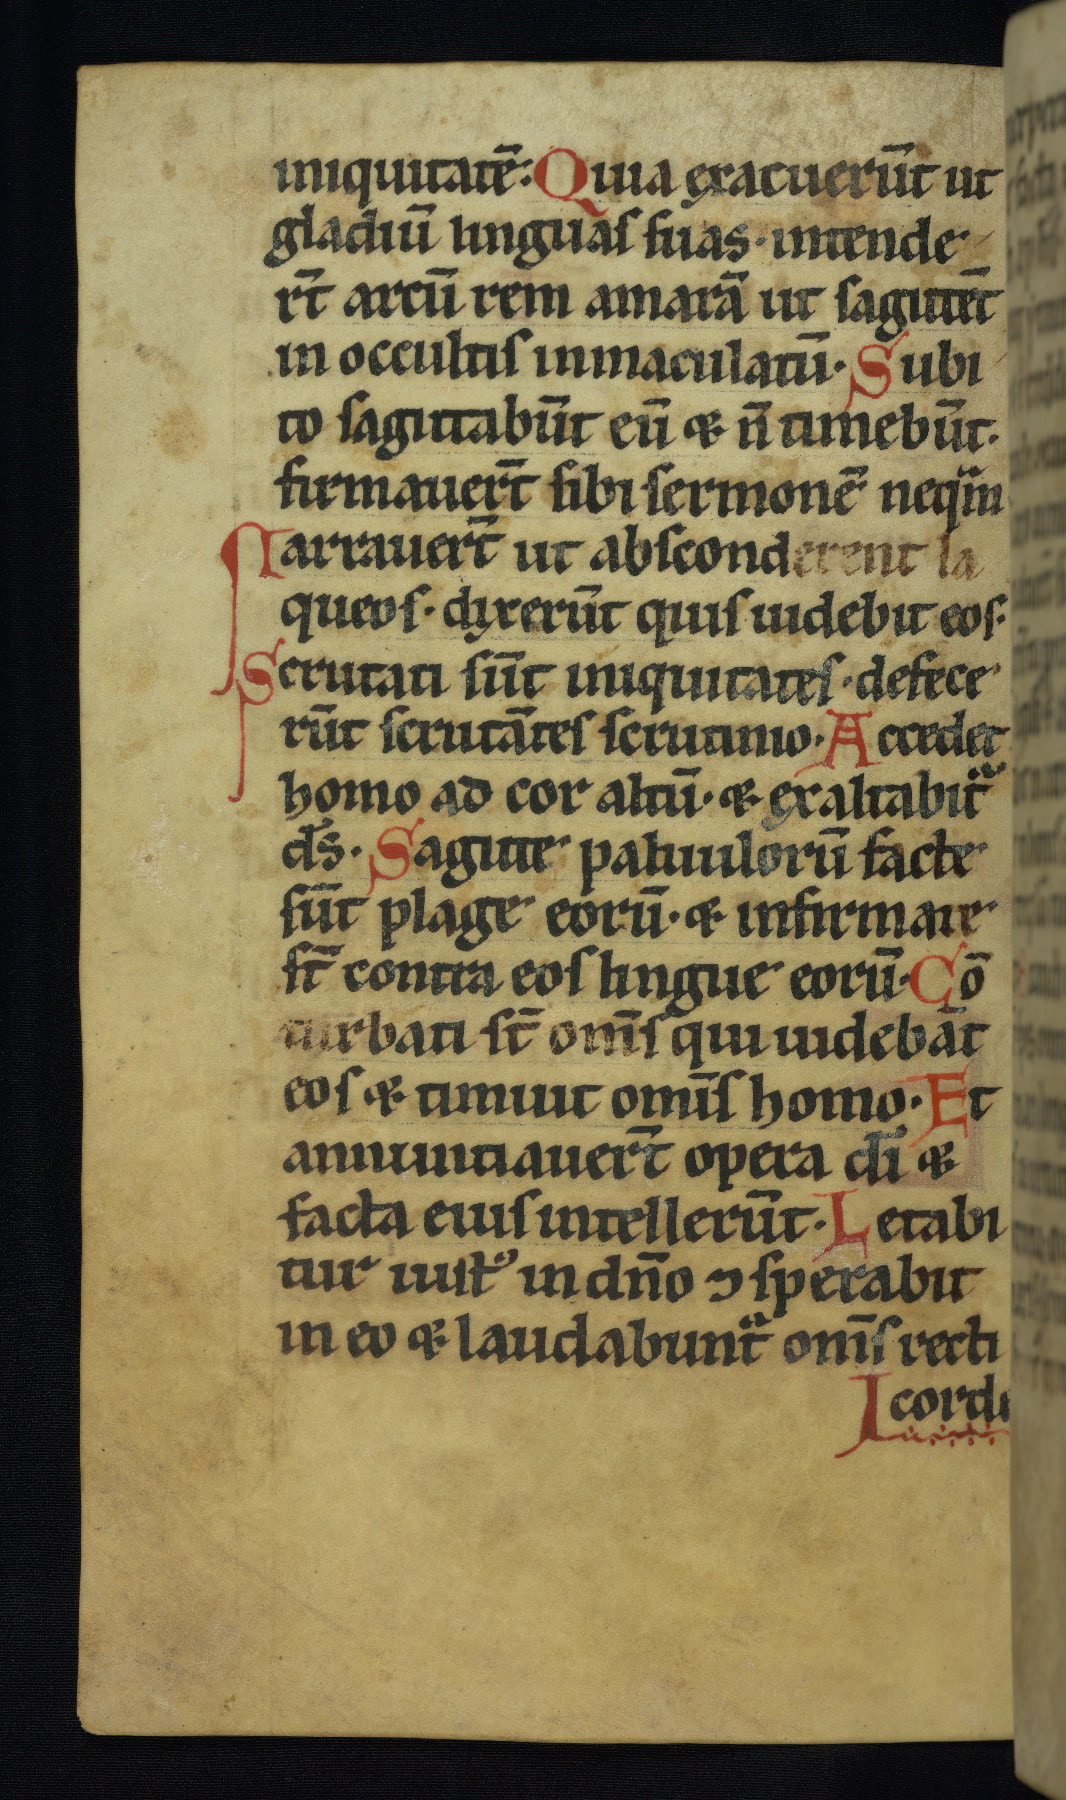 iniquitatē· Quia exacuerūt ut
gladiū linguas suas· intende
rt̄ arcū rem amarā ut sagittēt
in occultis inmaculatū· Subi
to sagittabūt eū & n̄ timebūt·
firmauert̄ sibi sermonē neqͣm
Narrauert̄ ut absconderent la
queos· dixerūt quis uidebit eos·
Scrutati sūt iniquitates· defece
rūt scrutātes scrutinio· Accedet
homo ad cor altū· & exaltabitͣ
ds̄· Sagitte paruulorū facte
sūt plage eorū· & infirmate
st̄ contra eos lingue eorū· Cō
turbati st̄ omīs qui uidebāt
eos & timuit omīs homo· Et
annuntiauert̄ opera dī &
facta eius intellerūt· Letabi
tur iustꝰ in dn̄o ⁊ sperabit
in eo & laudabuntͣ omīs recti
corde